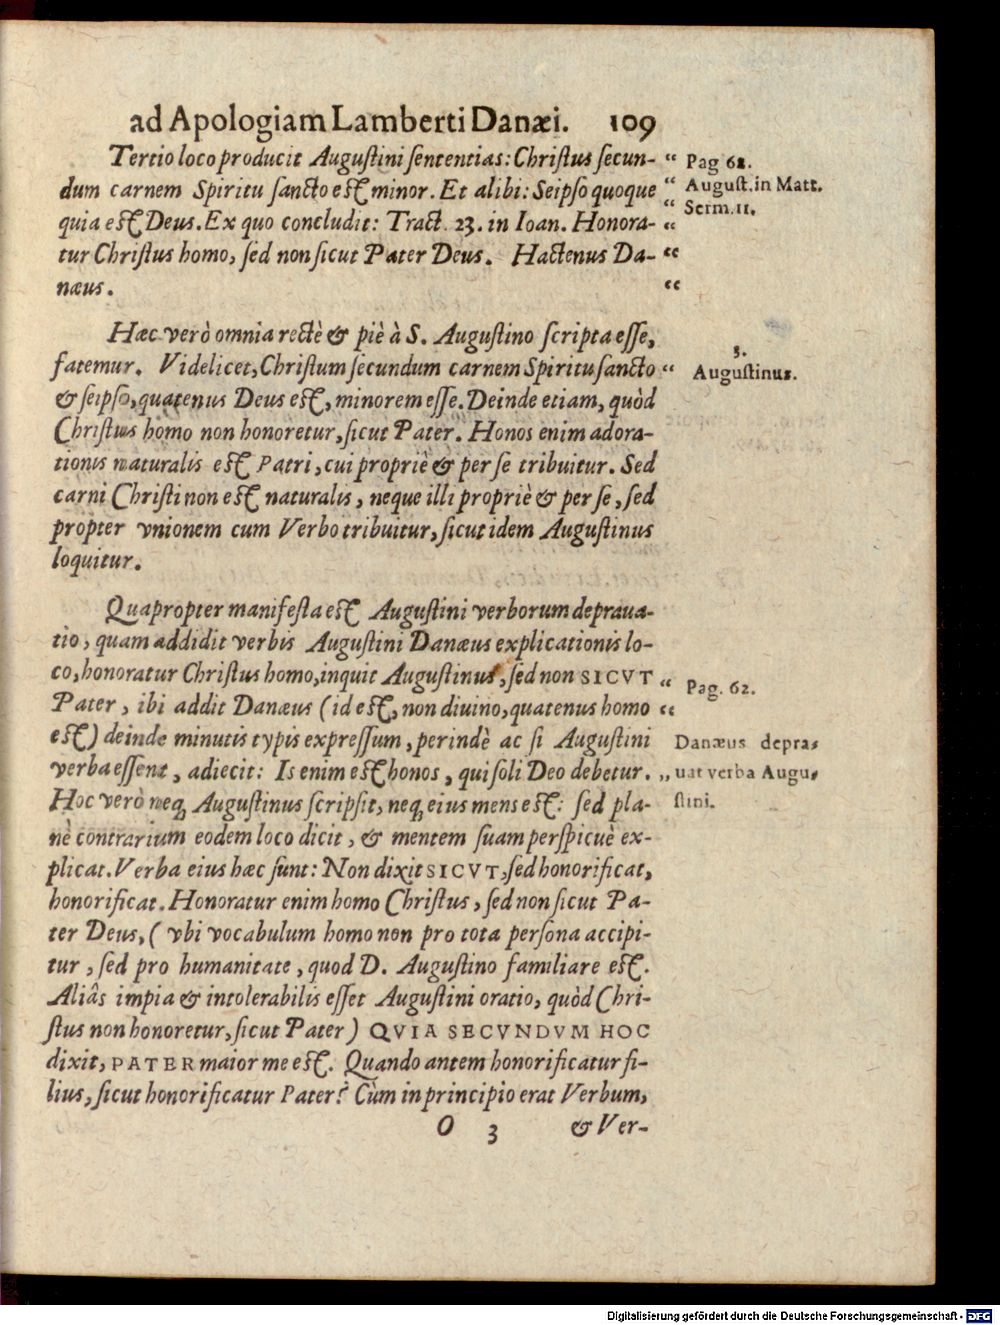 ad Apologiam Lamberti Danæi. 109
Tertio loco producit Augustini sententias: Christus secun- “
dum carnem Spiritu sancto est minor. Et alibi: Seipso quoque “
quia est Deus. Ex quo concludit: Tract. 23. in Ioan. Honora- “
tur Christus homo, sed non sicut Pater Deus. Hactenus Da- “
næus. “
Pag 62.
August. in Matt.
Serm. 11.
Hæc verò omnia rectè & piè à S. Augustino scripta esse,
fatemur. Videlicet, Christum secundum carnem Spiritu sancto “
& seipso, quatenus Deus est, minorem esse. Deinde etiam, quòd
Christus homo non honoretur, sicut Pater. Honos enim adora-
tionis naturalis est Patri, cui propriè & per se tribuitur. Sed
carni Christi non est naturalis, neque illi propriè & per se, sed
propter vnionem cum Verbo tribuitur, sicut idem Augustinus
loquitur.
3.
Augustinus.
Quapropter manifesta est Augustini verborum depraua-
tio, quam addidit verbis Augustini Danæus explicationis lo-
co, honoratur Christus homo, inquit Augustinus, sed non SICVT “
Pater, ibi addit Danæus (id est, non diuino, quatenus homo “
est) deinde minutis typis expressum, perindè ac si Augustini
verba essent, adiecit: Is enim est honos, qui soli Deo debetur. „
Hoc verò neq; Augustinus scripsit, neq; eius mens est: sed pla-
nè contrarium eodem loco dicit, & mentem suam perspicuè ex-
plicat. Verba eius hæc sunt: Non dixit SICVT, sed honorificat,
honorificat. Honoratur enim homo Christus, sed non sicut Pa-
ter Deus, (vbi vocabulum homo non pro tota persona accipi-
tur, sed pro humanitate, quod D. Augustino familiare est.
Aliâs impia & intolerabilis esset Augustini oratio, quòd Chri-
stus non honoretur, sicut Pater) QVIA SECVNDVM HOC
dixit, PATER maior me est. Quando antem honorificatur fi-
lius, sicut honorificatur Pater? Cùm in principio erat Verbum,
Pag. 62.
Danæus depra-
uat verba Augu-
stini.
O 3 & Ver-
Digitalisierung gefördert durch die Deutsche Forschungsgemeinschaft - DFG